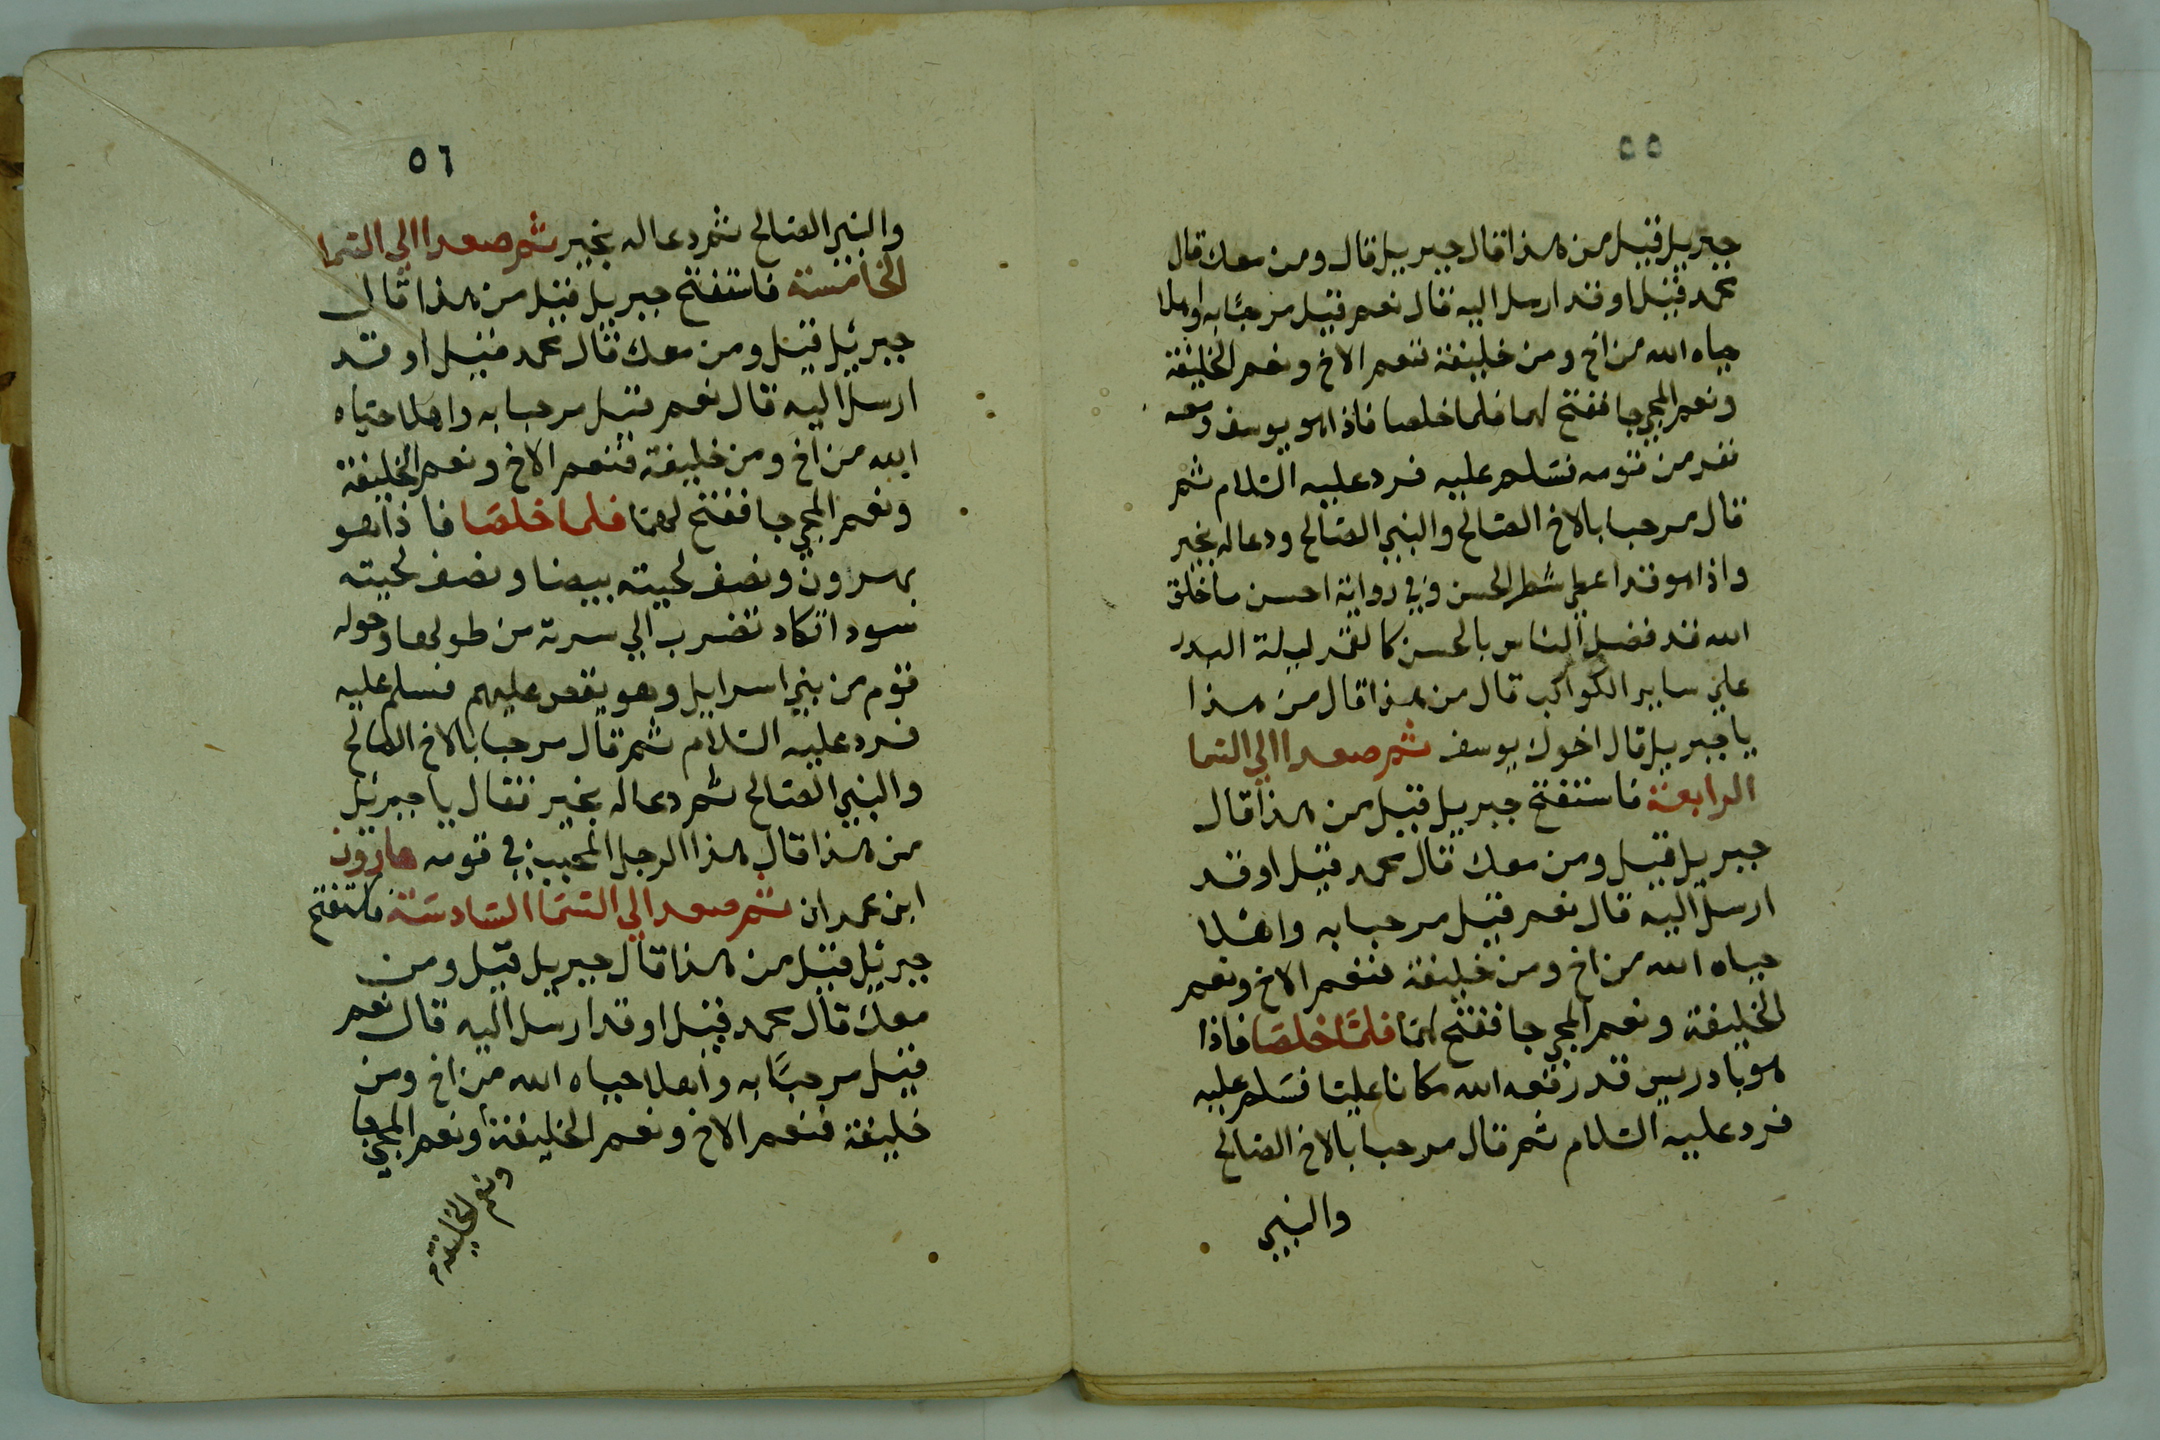 ٥٥
جبريل قيل من هذا قال جبريل قال ومن معك قال
محمد قيل اوقد ارسل اليه قال نعم قيل مرحبًا به واهلا
حياه الله من اخ ومن خليفة فنعم الاخ ونعم الخليفة
ونعم المجي جا ففتح لهما فلما خلصا فاذا هو بيوسف ومعه
نفر من قومه فسلم عليه فرد عليه السلام ثم
قال مرحبا بالاخ الصالح والنبي الصالح ودعا له بخير
واذا هو قد اعطي شطر الحسن وفي رواية احسن ما خلق
الله قد فضل الناس بالحسن كالقمر ليلة البدر
علي ساير الكواكب قال من هذا قال من هذا
يا جبريل قال اخوك يوسف ثم صعدا الي السما
الرابعة فاستفتح جبريل قيل من هذا قال
جبريل قيل ومن معك قال محمد قيل اوقد
ارسل اليه قال نعم قيل مرحبا به واهلا
حياه الله من اخ ومن خليفة فنعم الاخ ونعم
الخليفة ونعم المجي جا ففتح لهما فلما خلصا فاذا
هو بادريس قد رفعه الله مكانا عليا فسلم عليه
فرد عليه السلام ثم قال مرحبا بالاخ الصالح
والنبي
٥٦
والنبي الصالح ثم دعا له بخير ثم صعدا الي السما
الخامسة فاستفتح جبريل قيل من هذا قال
جبرئيل قيل ومن معك قال محمد قيل اوقد
ارسل اليه قال نعم قيل مرحبا به واهلا حياه
الله من اخ ومن خليفة فنعم الاخ ونعم الخليفة
ونعم المجي جا ففتح لهما فلما خلصا فاذا هو
بهرون ونصف لحيته بيضا ونصف لحيته
سودا تكاد تضرب الي سرته من طولها وحوله
قوم من بني اسرايل وهو يقص عليهم فسلم عليه
فرد عليه السلام ثم قال مرحبا بالاخ الصالح
والنبي الصالح ثم دعا له بخير فقال يا جبرئيل
من هذا قال هذا الرجل المحبب في قومه هارون
ابن عمران ثم صعد الي السما السادسة فاستفتح
جبرئيل قيل من هذا قال جبريل قيل ومن
معك قال محمد قيل اوقد ارسل اليه قال نعم
قيل مرحبًا به واهلا حياه الله من اخ ومن
خليفة فنعم الاخ ونعم الخليفة ونعم المجي جا
ونعم الخليفة